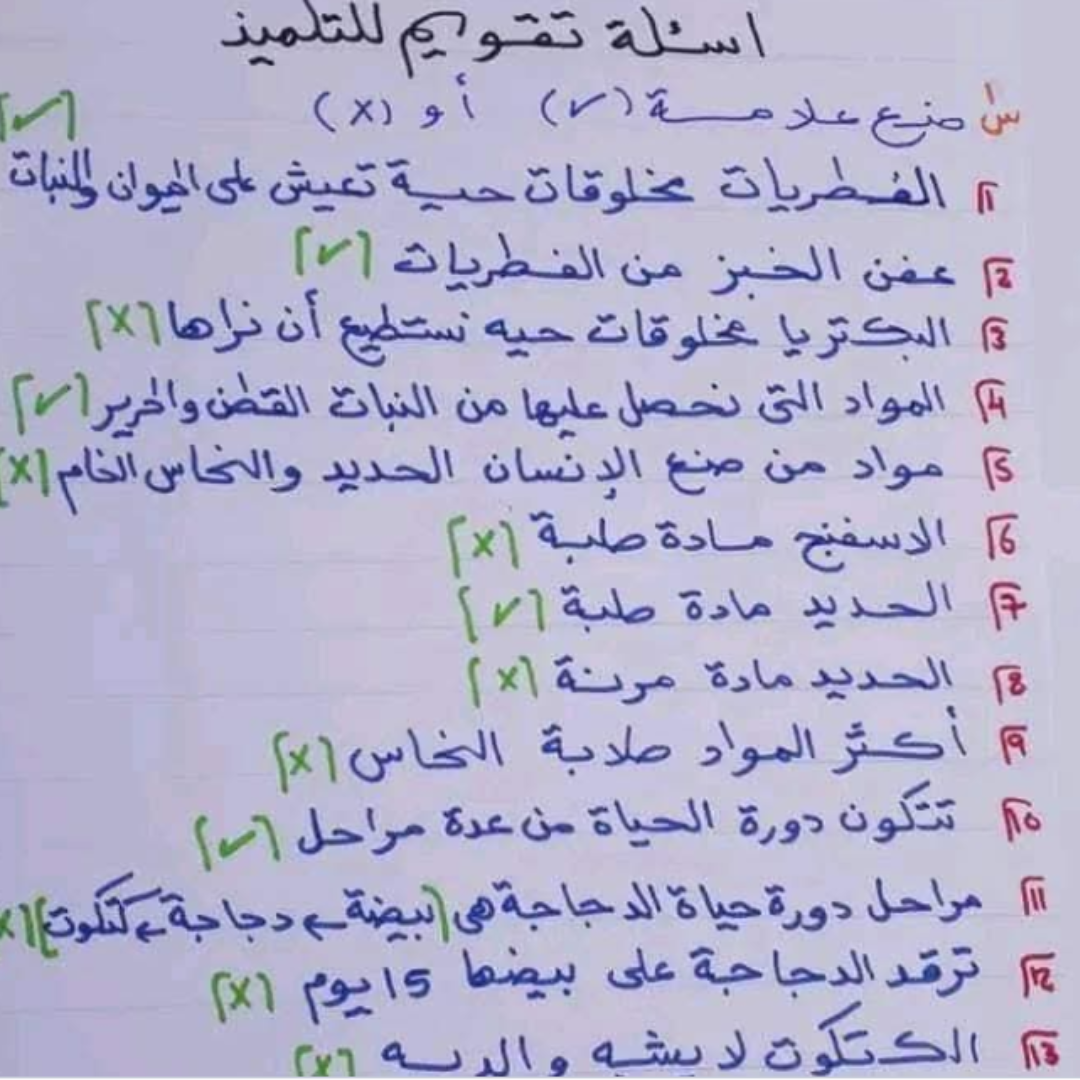 اسئلة تقويم للتلميذ
س١ ضع علامة (✓) أو (x)
١ الفطريات مخلوقات حية تعيش على الحيوان والنبات [✓]
2 عفن الخبز من الفطريات [✓]
3 البكتريا مخلوقات حيه نستطيع أن نراها [x]
4 المواد التى نحصل عليها من النبات القطن والحرير [✓]
5 مواد من صنع الإنسان الحديد والنحاس الخام [x]
6 الاسفنج مادة صلبة [x]
7 الحديد مادة صلبة [✓]
8 الحديد مادة مرنة [x]
9 أكثر المواد صلابة النحاس [x]
10 تتكون دورة الحياة من عدة مراحل [✓]
11 مراحل دورة حياة الدجاجة هى [بيضة ← دجاجة ← كتكوت] [x]
12 ترقد الدجاجة على بيضها 15 يوم [x]
13 الكتكوت لا يشبه والديه [x]